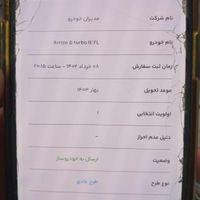 نام شرکت مدیران خودرو
نام خودرو Arrizo 5 turbo IE FL
زمان ثبت سفارش ۰۸ خرداد ۱۴۰۲ - ساعت ۲۰:۱۵
موعد تحویل بهار ۱۴۰۳
اولویت انتخابی ۱
دلیل عدم احراز -
وضعیت ارسال به خودروساز
نوع طرح طرح عادی